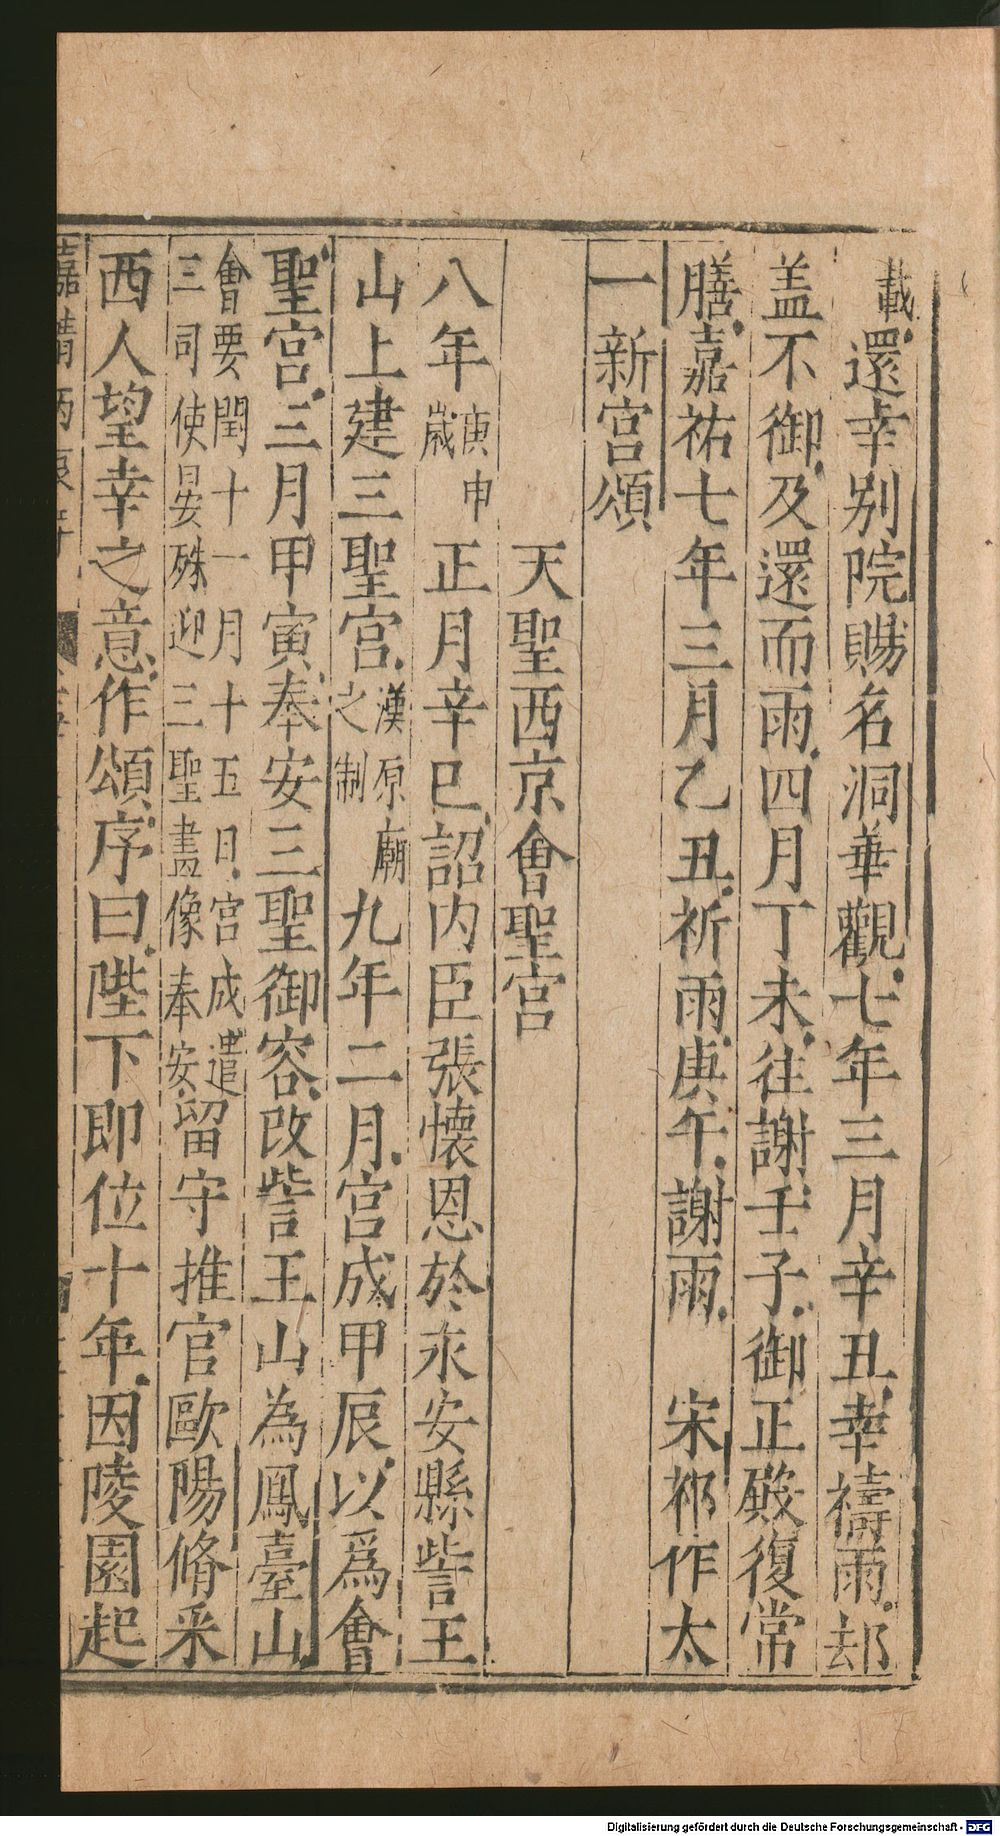 載還幸别院賜名洞華觀七年三月辛丑幸禱雨却
盖不御及還而雨四月丁未往謝壬子御正殿復常
膳嘉祐七年三月乙丑祈雨庚午謝雨 宋祁作太
一新宫頌
天聖西京會聖宫
八年庚申歲正月辛巳詔内臣張懷恩於永安縣訾王
山上建三聖宫漢原廟之制九年二月宫成甲辰以爲會
聖宫三月甲寅奉安三聖御容改訾王山為鳳臺山
會要閏十一月十五日宫成遣三司使晏殊迎三聖畫像奉安留守推官歐陽脩采
西人望幸之意作頌序曰陛下即位十年因陵園起
嘉靖丙
Digitalisierung gefördert durch die Deutsche Forschungsgemeinschaft - DFG